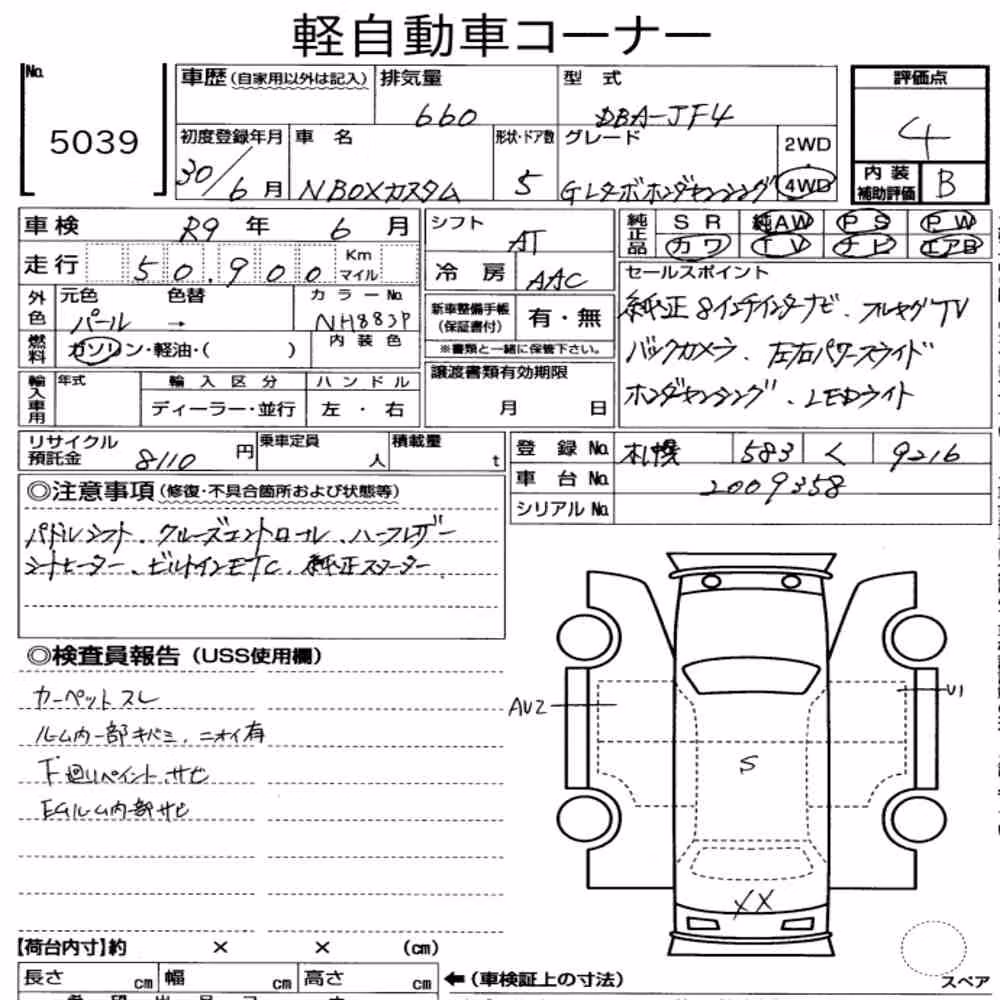 軽自動車コーナー
No. 5039
車歴(自家用以外は記入) 排気量 660 型式 DBA-JF4 評価点 4
初度登録年月 30/6月 車名 NBOXカスタム 形状・ドア数 5 グレード GLターボホンダセンシング 2WD 4WD
内装補助評価 B
車検 R9年 6月 シフト AT 純正品 SR 純AW PS PW
カワ TV ナビ エアB
走行 50,900 Km マイル 冷房 AAC
セールスポイント
純正8インチインターナビ、フルセグTV
バックカメラ、左右パワースライド
ホンダセンシング、LEDライト
外色 元色 パール 色替 → カラーNo. NH883P
新車整備手帳(保証書付) 有・無
※書類と一緒に保管下さい。
燃料 ガソリン・軽油・( ) 内装色
輸入車用 年式 輸入区分 ハンドル
ディーラー・並行 左・右
譲渡書類有効期限
月 日
リサイクル預託金 8110円 乗車定員 人 積載量 t
登録No. 札幌 583 く 9216
車台No. 2009358
シリアルNo.
◎注意事項(修復・不具合箇所および状態等)
パドルシフト、クルーズコントロール、ハーフレザー
シートヒーター、ビルトインETC、純正スターター
◎検査員報告(USS使用欄)
カーペットスレ
ルーム内一部キバミ、ニオイ有
下廻りペイントサビ
EGルーム内部サビ
AU2
U1
S
XX
【荷台内寸】約 × × (cm)
長さ cm 幅 cm 高さ cm
←(車検証上の寸法)
スペア